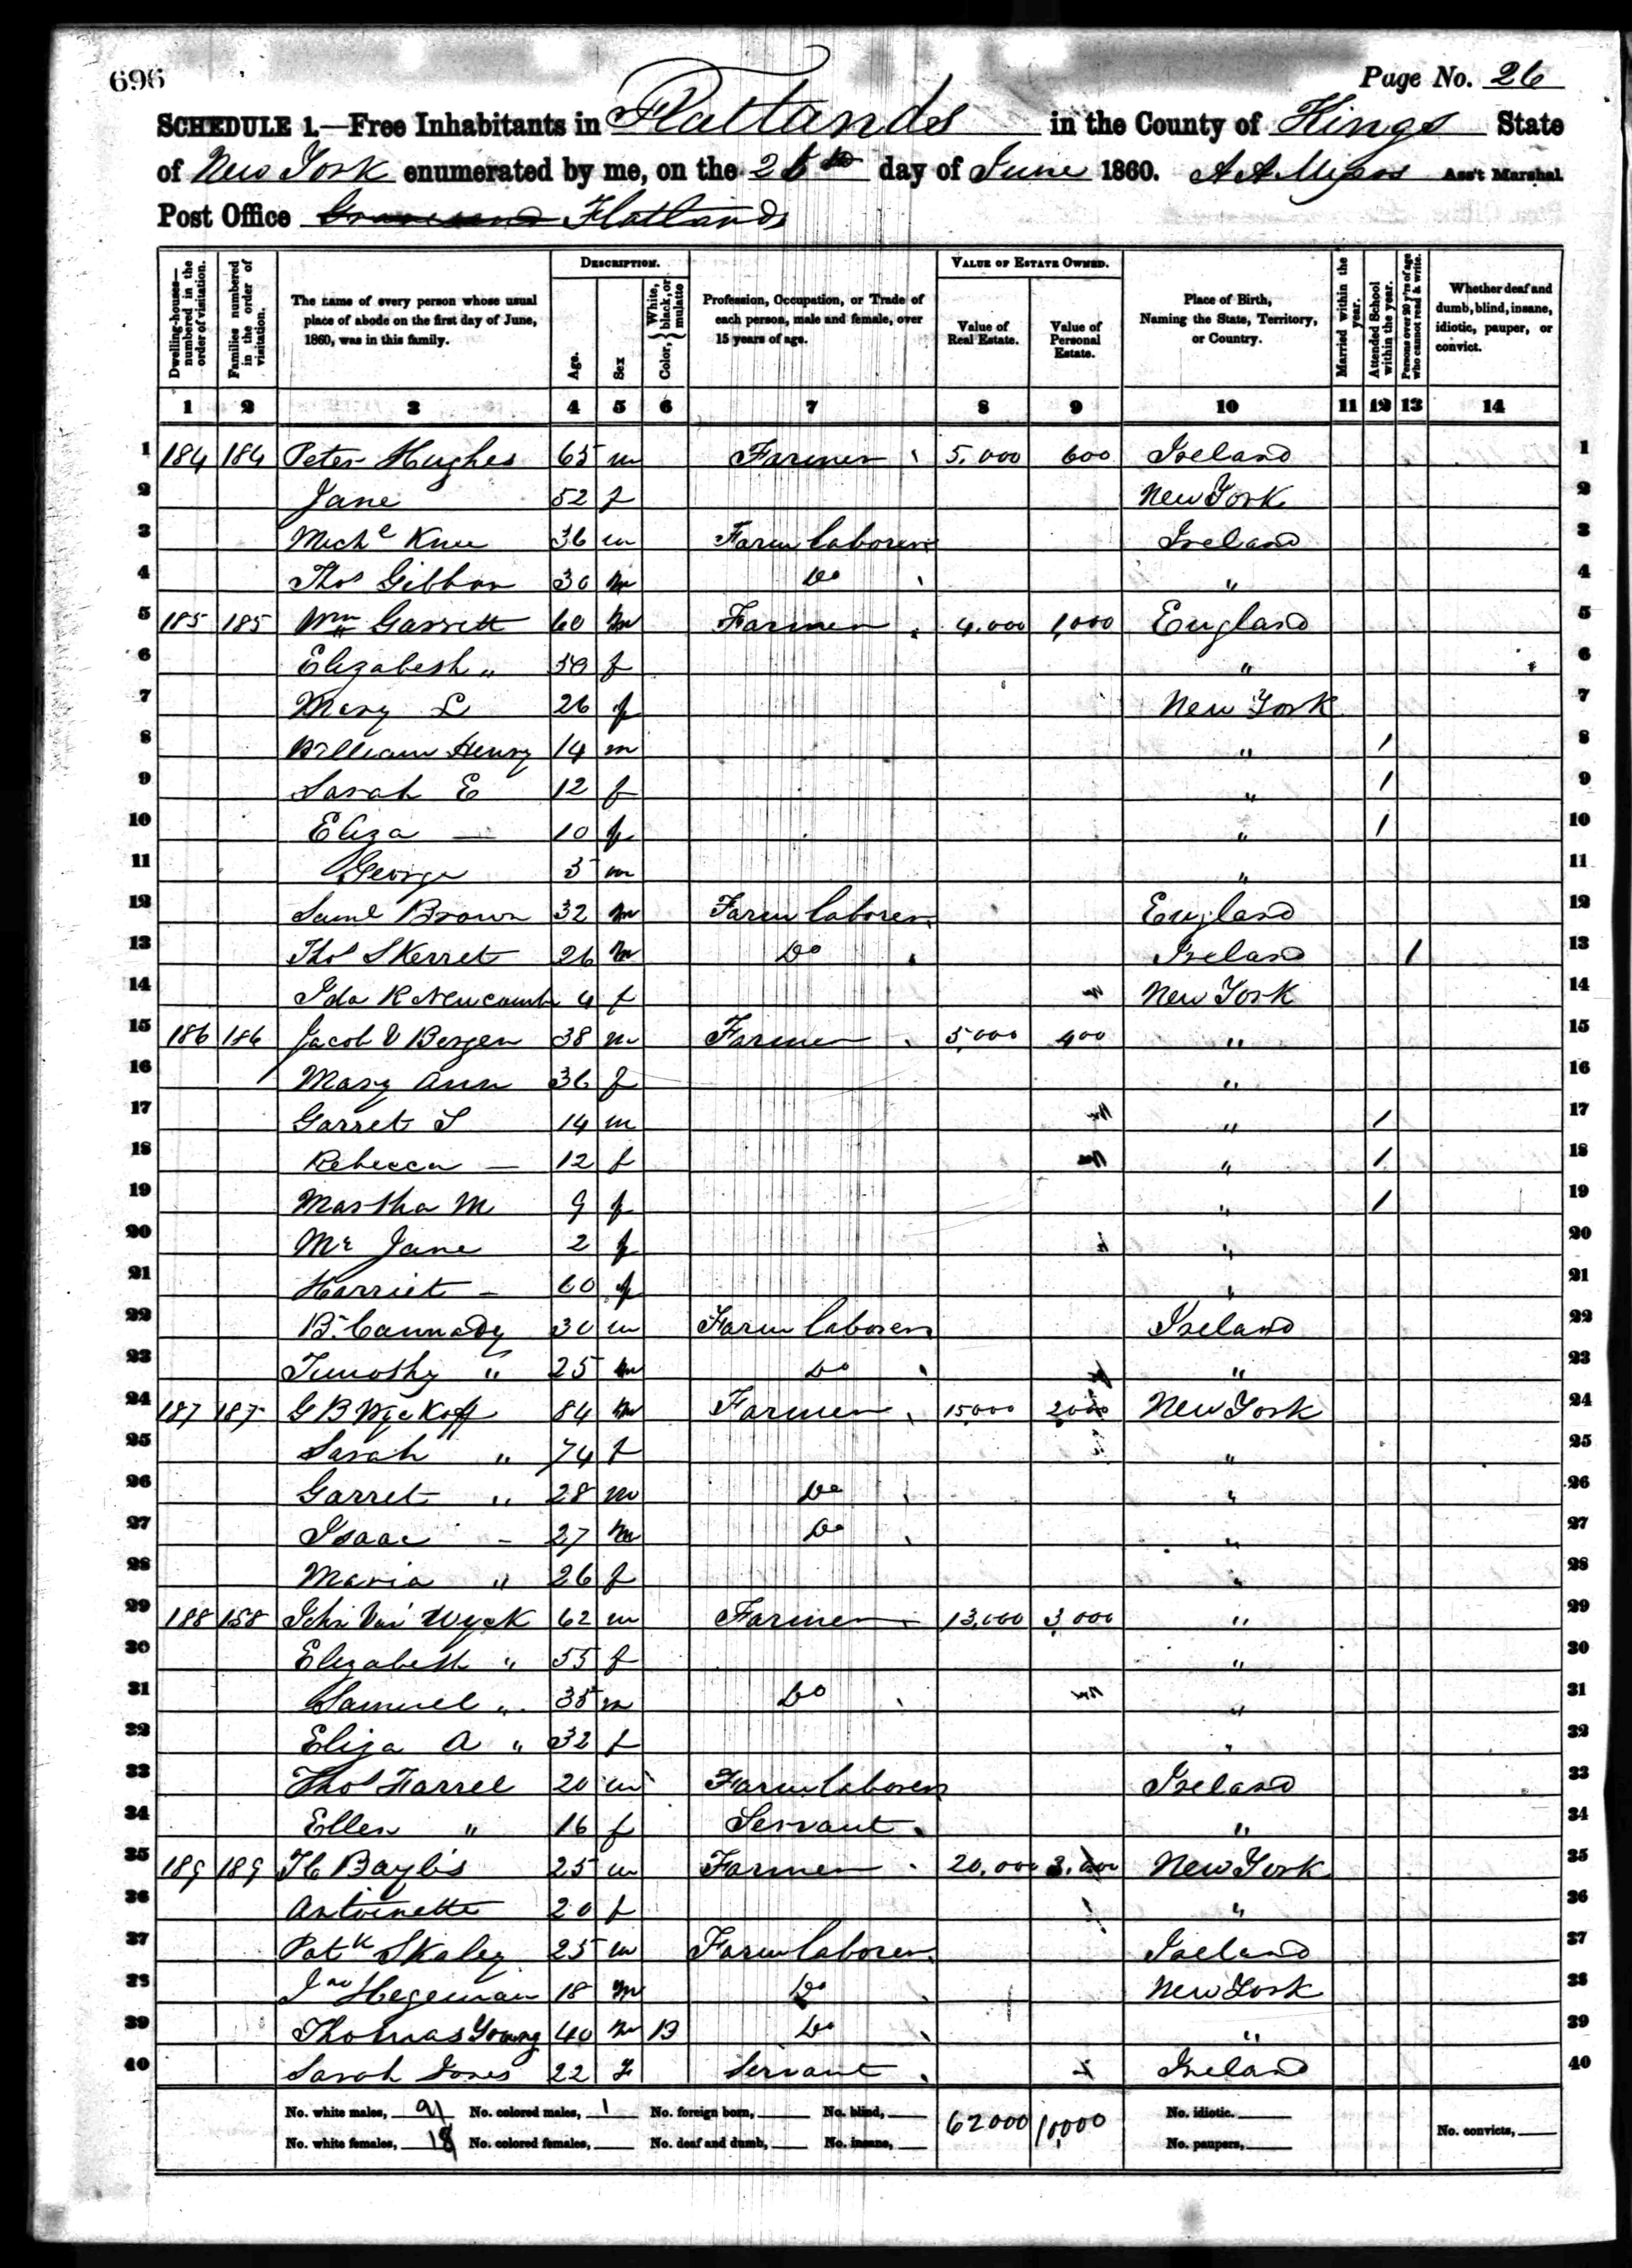 696
Page No. 26
SCHEDULE 1.—Free Inhabitants in Flatlands in the County of Kings State
of New York enumerated by me, on the 26th day of June 1860. A A Myers Ass't Marshal
Post Office Gravesend Flatlands
Dwelling-houses—numbered in the order of visitation.
Families numbered in the order of visitation.
The name of every person whose usual place of abode on the first day of June, 1860, was in this family.
DESCRIPTION.
Age.
Sex
Color, { White, black, or mulatto
Profession, Occupation, or Trade of each person, male and female, over 15 years of age.
VALUE OF ESTATE OWNED.
Value of Real Estate.
Value of Personal Estate.
Place of Birth, Naming the State, Territory, or Country.
Married within the year.
Attended School within the year.
Persons over 20 y'rs of age who cannot read & write.
Whether deaf and dumb, blind, insane, idiotic, pauper, or convict.
1 2 3 4 5 6 7 8 9 10 11 12 13 14
1 184 184 Peter Hughes 65 m Farmer 5,000 600 Ireland 1
2 Jane 52 f New York 2
3 Miche 36 m Farm laborer Ireland 3
4 Thos Gibbon 30 m Do " 4
5 185 185 Wm Garrett 60 m Farmer 4,000 1,000 England 5
6 Elizabeth " 50 f " 6
7 Mary L 26 f New York 7
8 William Henry 14 m " / 8
9 Sarah E 12 f " / 9
10 Eliza — 10 f " / 10
11 George 5 m " 11
12 Saml Brown 32 m Farm laborer England 12
13 Thos Skerret 26 m Do Ireland / 13
14 Ida R Newcomb 4 f New York 14
15 186 186 Jacob V Bergen 38 m Farmer 5,000 400 " 15
16 Mary Ann 36 f " 16
17 Garret S 14 m " / 17
18 Rebecca — 12 f " / 18
19 Martha M 9 f " / 19
20 Jane 2 f " 20
21 Harriet - 60 f " 21
22 B. Cannady 30 m Farm laborer Ireland 22
23 Timothy " 25 m Do " 23
24 187 187 G B Wyckoff 84 m Farmer 15,000 2000 New York 24
25 Sarah " 74 f " 25
26 Garret " 28 m Do " 26
27 Isaac - 27 m Do " 27
28 Maria " 26 f " 28
29 188 188 John Van Wyck 62 m Farmer 13,000 3,000 " 29
30 Elizabeth " 55 f " 30
31 Samuel " 35 m Do " 31
32 Eliza A " 32 f " 32
33 Thos Farrel 20 m Farm laborer Ireland 33
34 Ellen " 16 f Servant " 34
35 189 189 Baylis 25 m Farmer 20,000 3,000 New York 35
36 Antoinette 20 f " 36
37 Patk Skaley 25 m Farm laborer Ireland 37
38 Jno Hegeman 18 m Do New York 38
39 Thomas Young 40 m B Do " 39
40 Sarah Jones 22 F Servant Ireland 40
No. white males, 21 No. colored males, 1 No. foreign born, No. blind, 62000 10,000 No. idiotic.
No. white females, 18 No. colored females, No. deaf and dumb, No. insane, No. paupers, No. convicts,